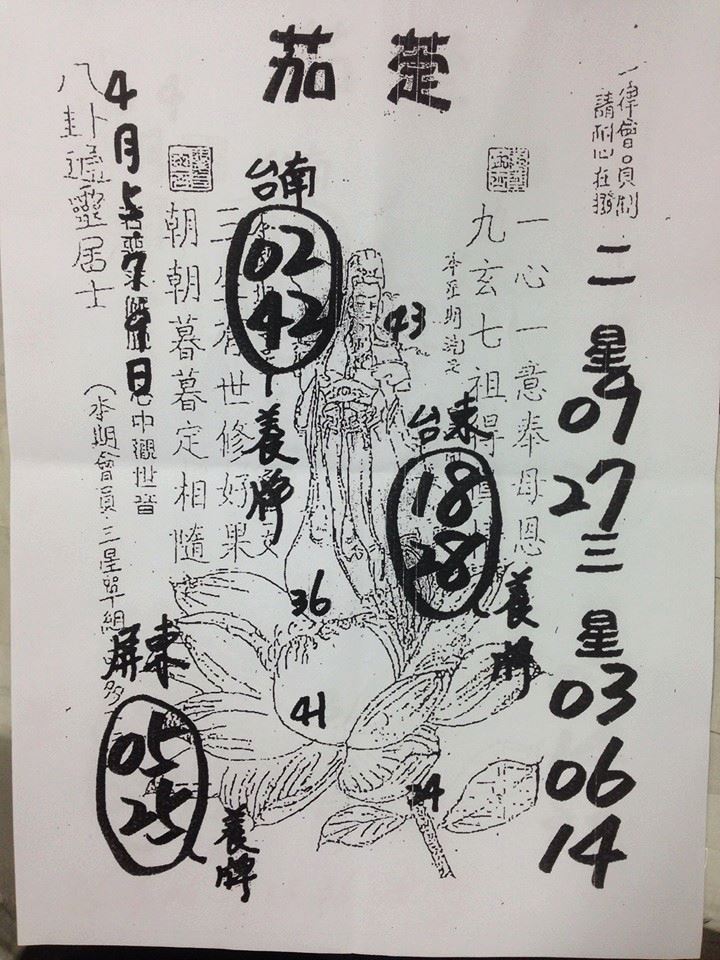 茄楚
一律會員制
請耐心在撥
二星
07
27
三星
03
06
14
一心一意奉母恩
九玄七祖得
43
台東
18
28
養牌
台南
02
42
養牌
三 有世修好果
朝朝暮暮定相隨
36
41
24
4月 日
心中觀世音
八卦通靈居士
(本期會員三星單組 多
屏東
05
25
養牌